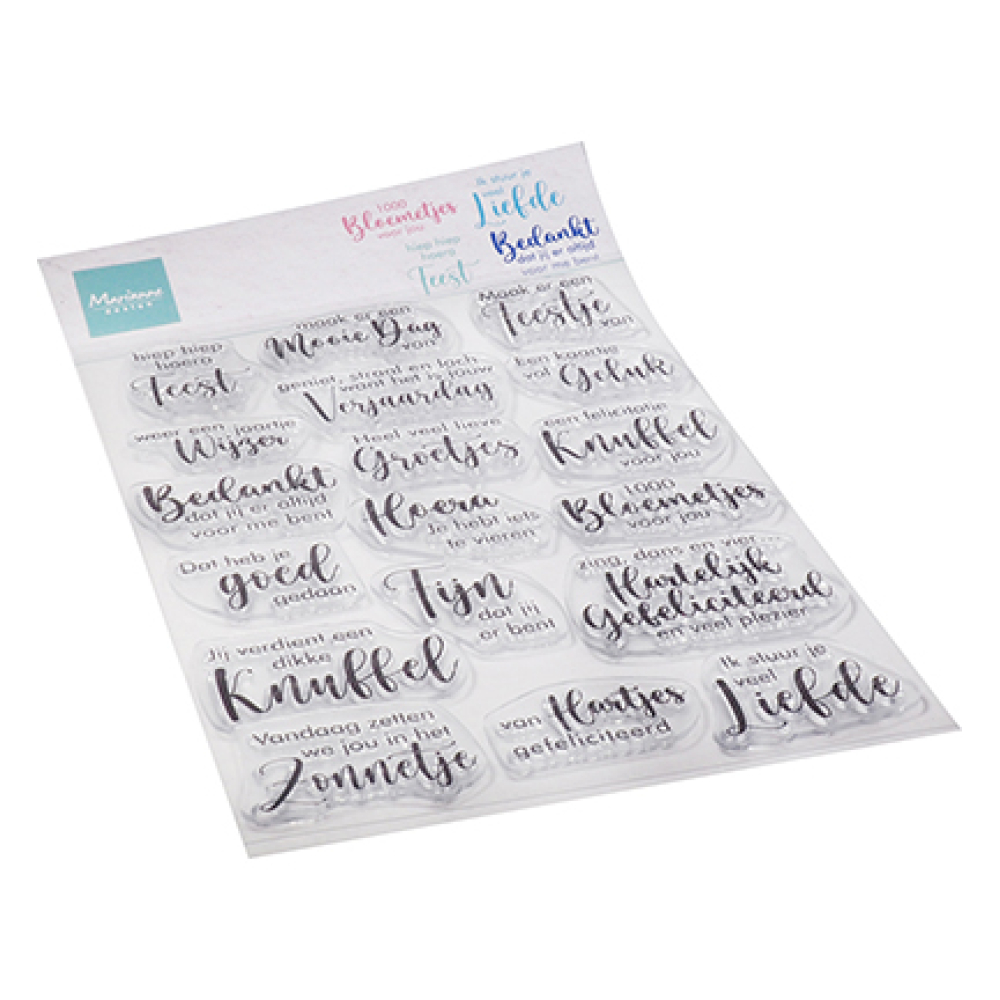 1000
Bloemetjes
voor jou
Ik stuur je
veel
Liefde
hiep hiep
hoera
Feest
Bedankt
dat jij er altijd
voor me bent
Marianne
DESIGN
hiep hiep
hoera
Feest
maak er een
Mooie Dag
van
Maak er een
Feestje
van
geniet, straal en lach
want het is jouw
Verjaardag
Een kaartje
vol Geluk
weer een jaartje
Wijzer
Heel veel lieve
Groetjes
een felicitatie
Knuffel
voor jou
Bedankt
dat jij er altijd
voor me bent
Hoera
Je hebt iets
te vieren
1000
Bloemetjes
voor jou
Dat heb je
goed
gedaan
Fijn
dat jij
er bent
zing, dans en vier...
Hartelijk
Gefeliciteerd
en veel plezier
Jij verdient een
dikke
Knuffel
van Hartjes
gefeliciteerd
Ik stuur je
veel
Liefde
Vandaag zetten
we jou in het
Zonnetje